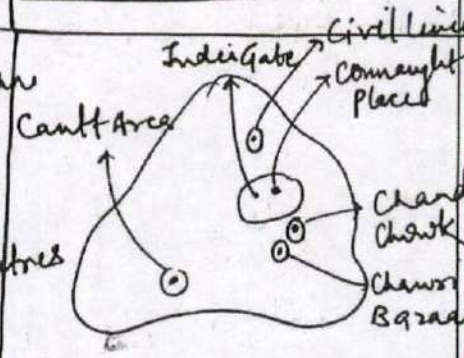 India Gate
Civil Line
Connaught
Place
Cantt Area
Chand
Chowk
Chawri
Bazaa